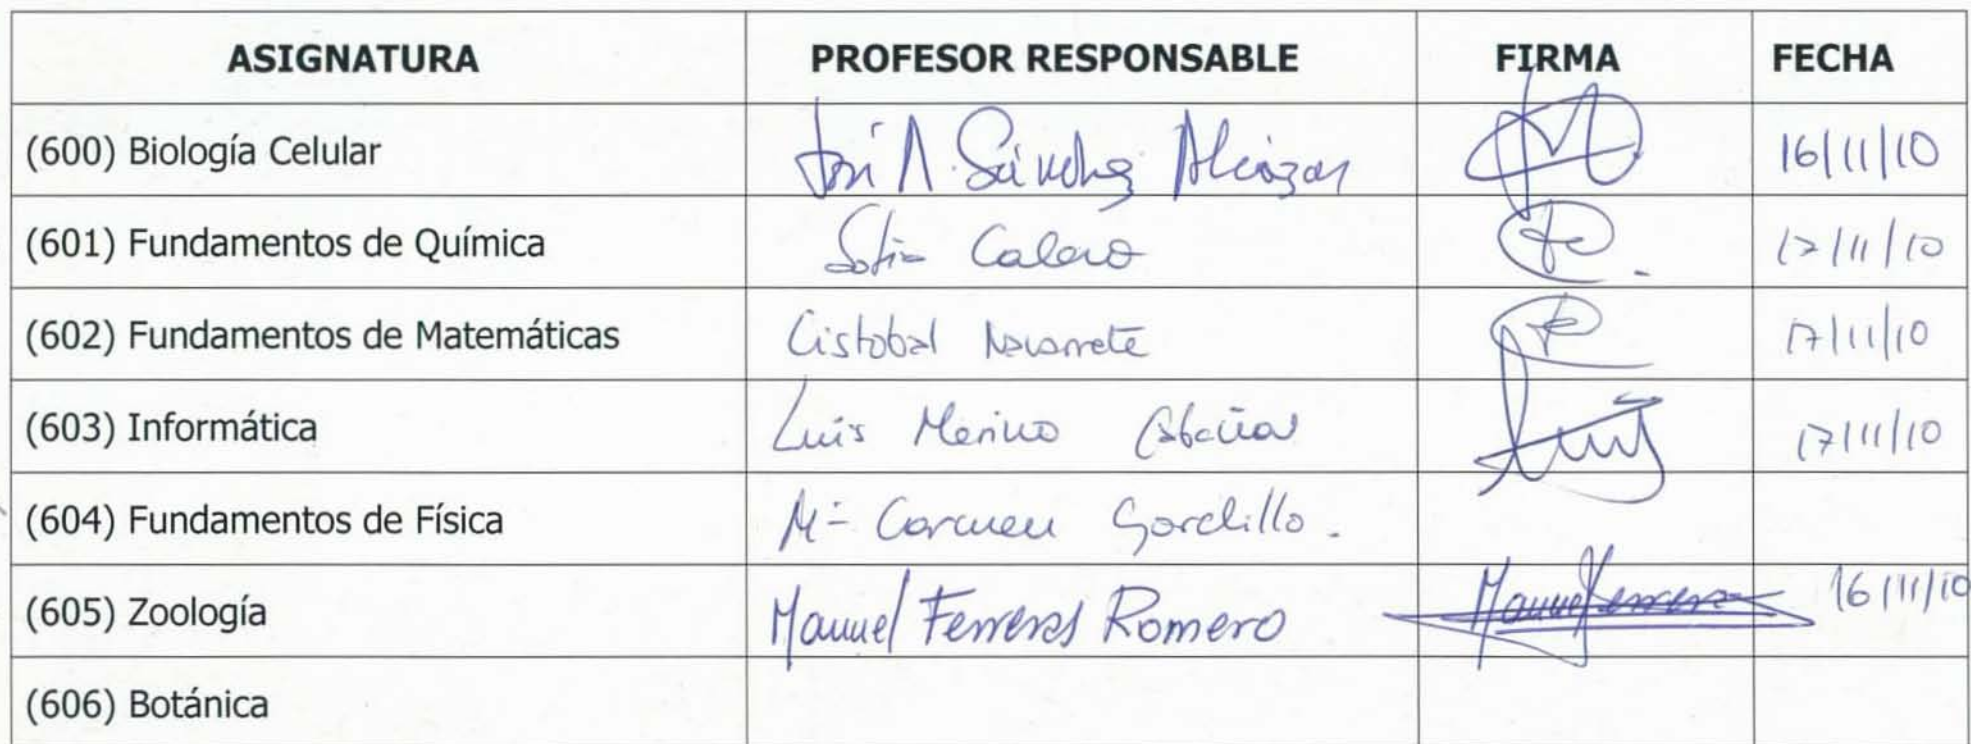 ASIGNATURA PROFESOR RESPONSABLE FIRMA FECHA
(600) Biología Celular José A. Sánchez Alcázar 16/11/10
(601) Fundamentos de Química Sofía Calero 17/11/10
(602) Fundamentos de Matemáticas Cistobal Navarrete 17/11/10
(603) Informática Luis Merino Cabañas 17/11/10
(604) Fundamentos de Física Mª Carmen Gordillo.
(605) Zoología Manuel Ferreras Romero 16/11/10
(606) Botánica